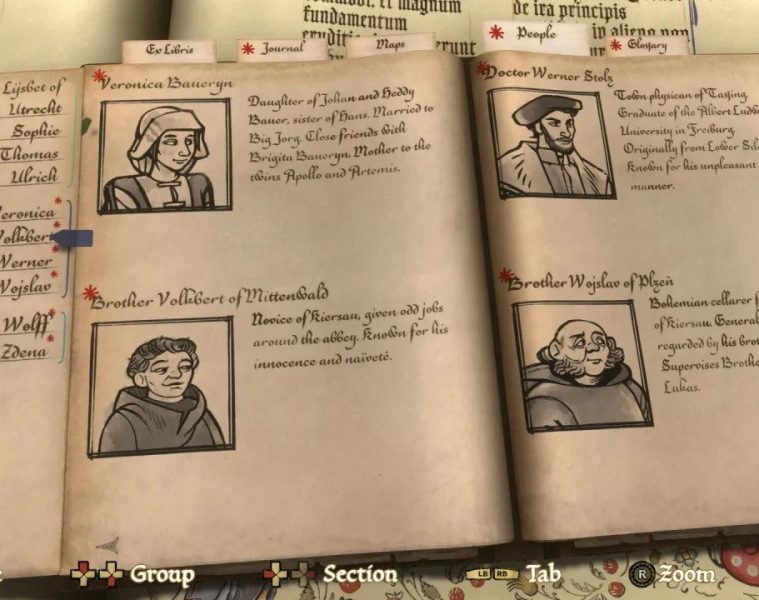 et magnum
fundamentum
de ira principis
in alieno non
Ex Libris
Journal
Maps
People
Glossary
Lijsbet of
Utrecht
Sophie
Thomas
Ulrich
Veronica
Volkbert
Werner
Wojslav
Wolff
Zdena
Veronica Baueryn
Daughter of Johan and Heddy
Bauer, sister of Hans. Married to
Big Jorg. Close friends with
Brigita Baueryn. Mother to the
twins Apollo and Artemis.
Brother Volkbert of Mittenwald
Novice of Kiersau, given odd jobs
around the abbey. Known for his
innocence and naïveté.
Doctor Werner Stolz
Town physican of Tassing
Graduate of the Albert Ludw
University in Freiburg.
Originally from Lower
Known for his unpleasant
manner.
Brother Wojslav of Plzeň
Bohemian cellarer f
of Kiersau. General
regarded by his brot
Supervises Brothe
Lukas.
Group
Section
LB RB Tab
R Zoom